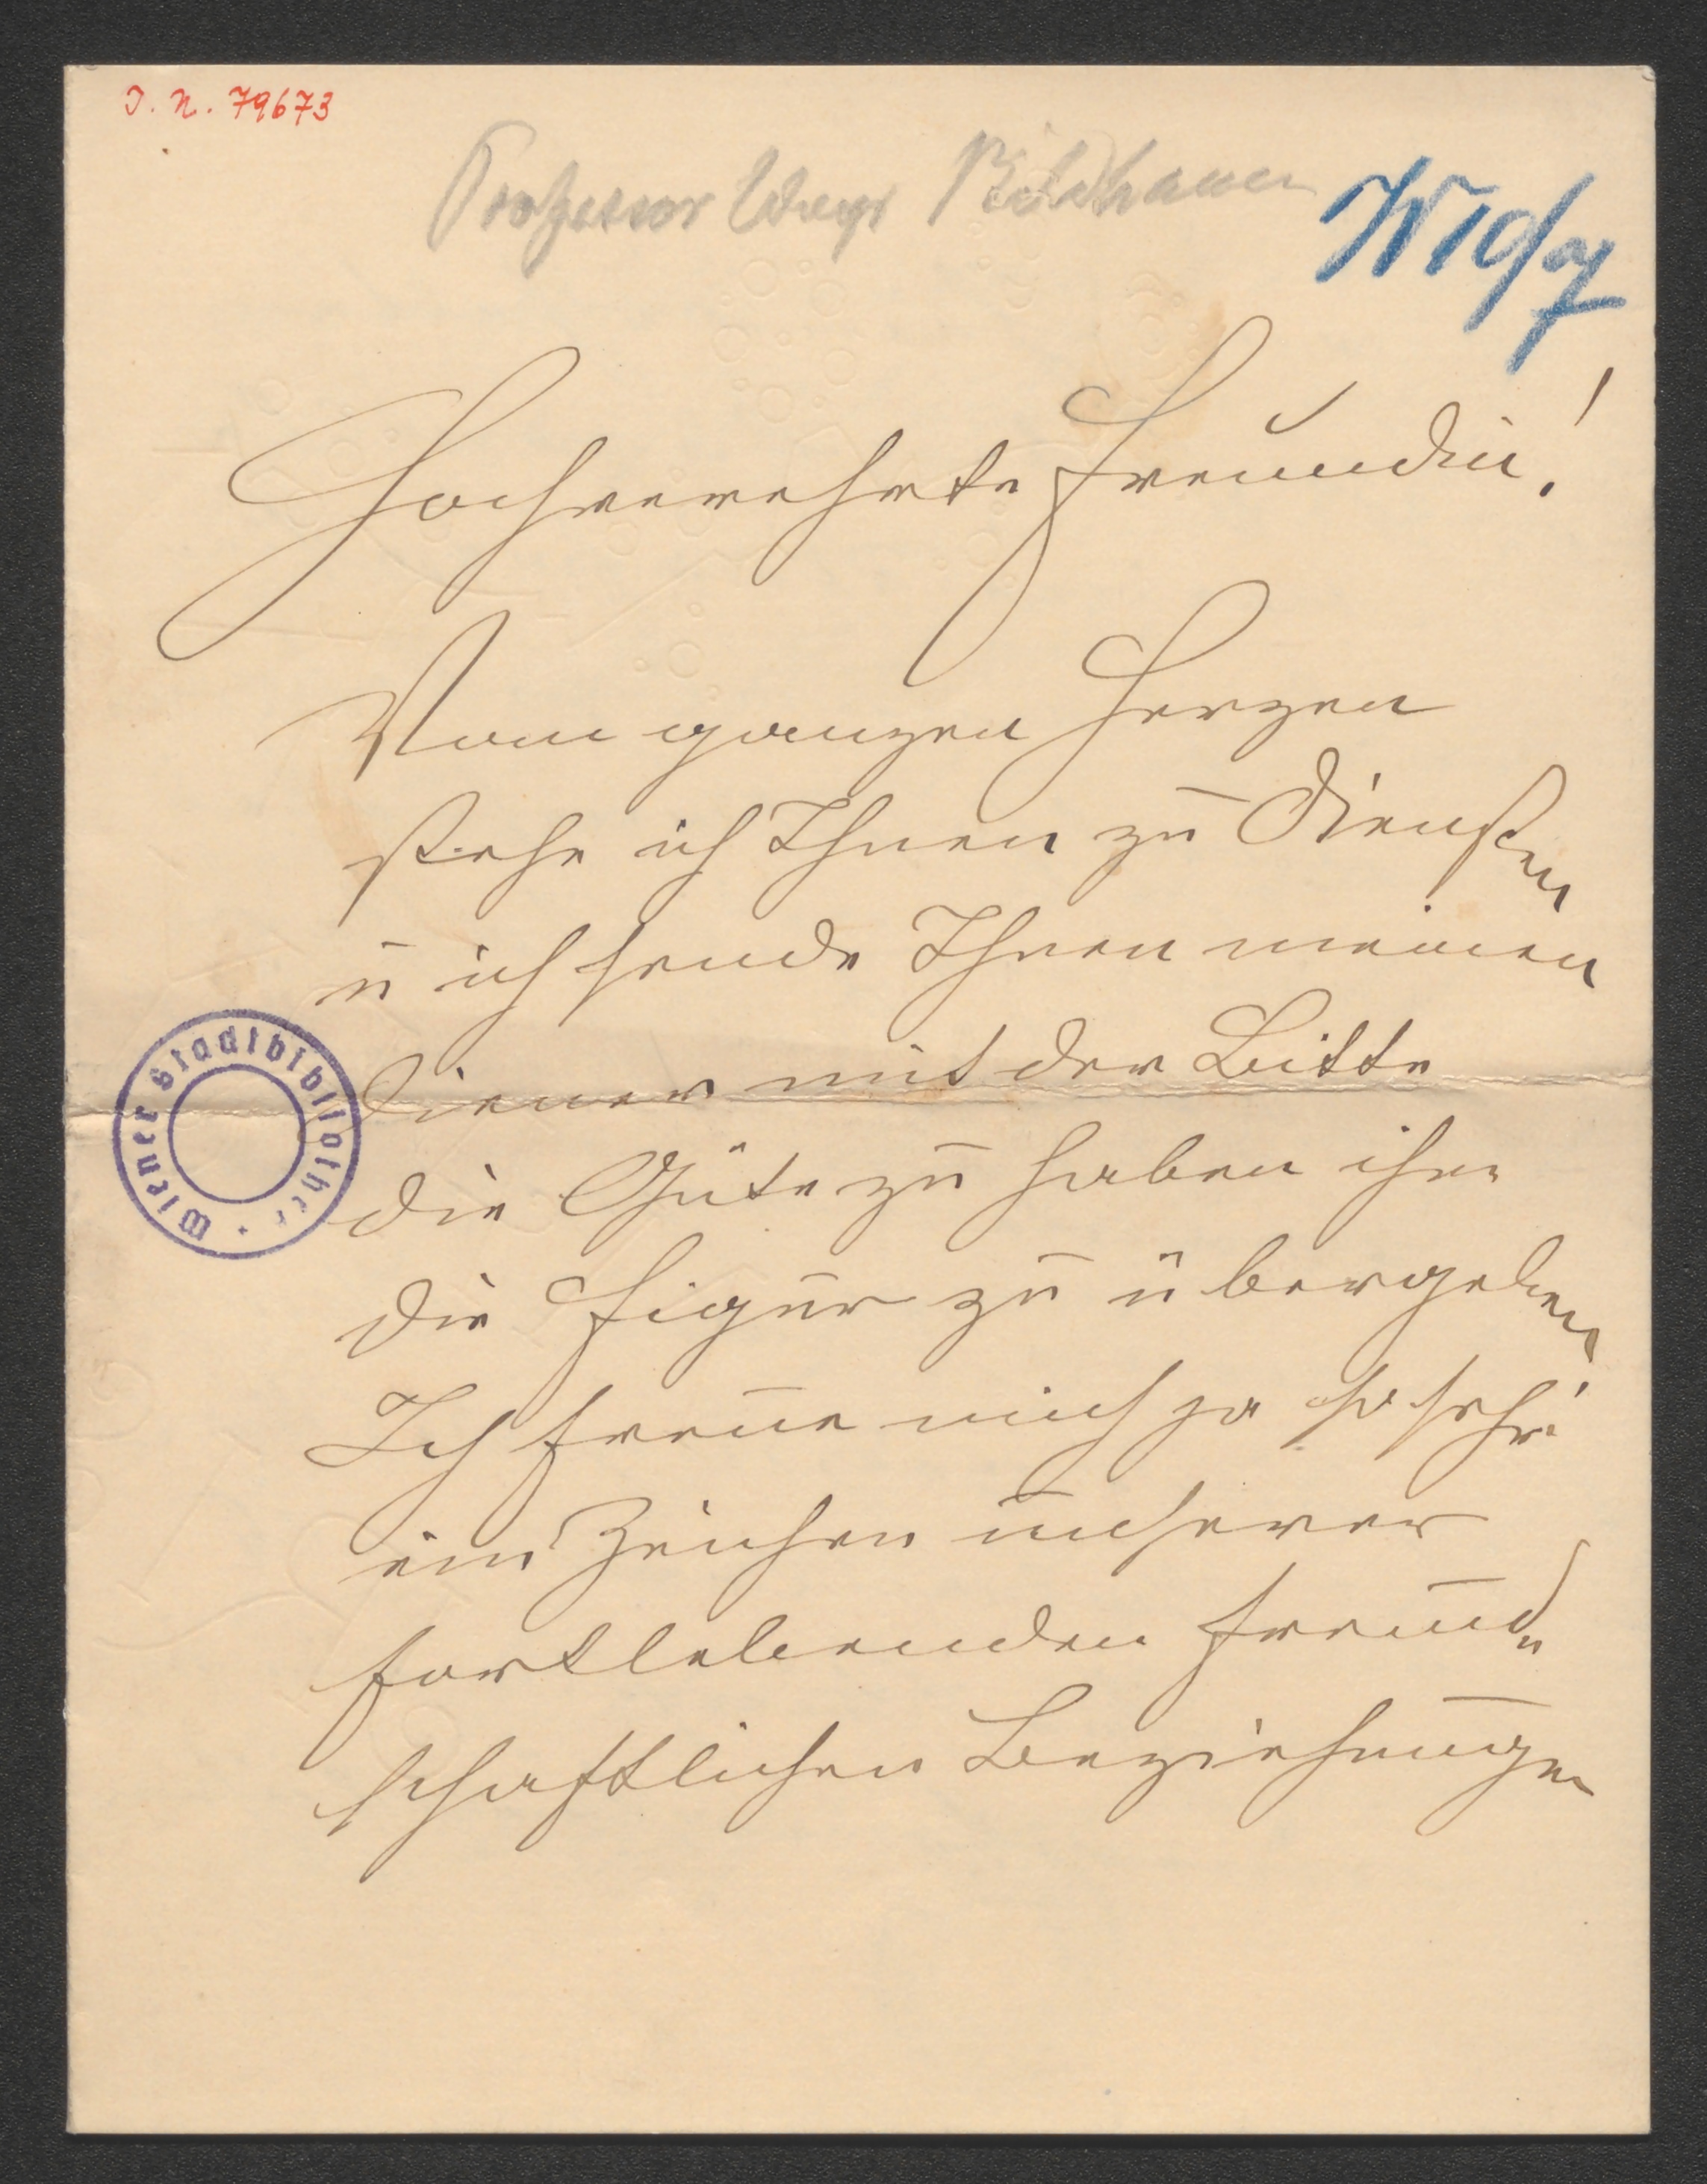 J. N. 79673
Professor Weyr Bildhauer
Hochverehrte Freundin!
Vom ganzen Herzen
stehe ich Ihnen zu Diensten
u ich sende Ihnen meinen
Diener mit der Bitte
die Güte zu haben ihm
die Figur zu übergeben
Ich freue mich ja so sehr
ein Zeichen unserer
fortlebenden freund„
schaftlichen Beziehungen
Wiener Stadtbibliothek